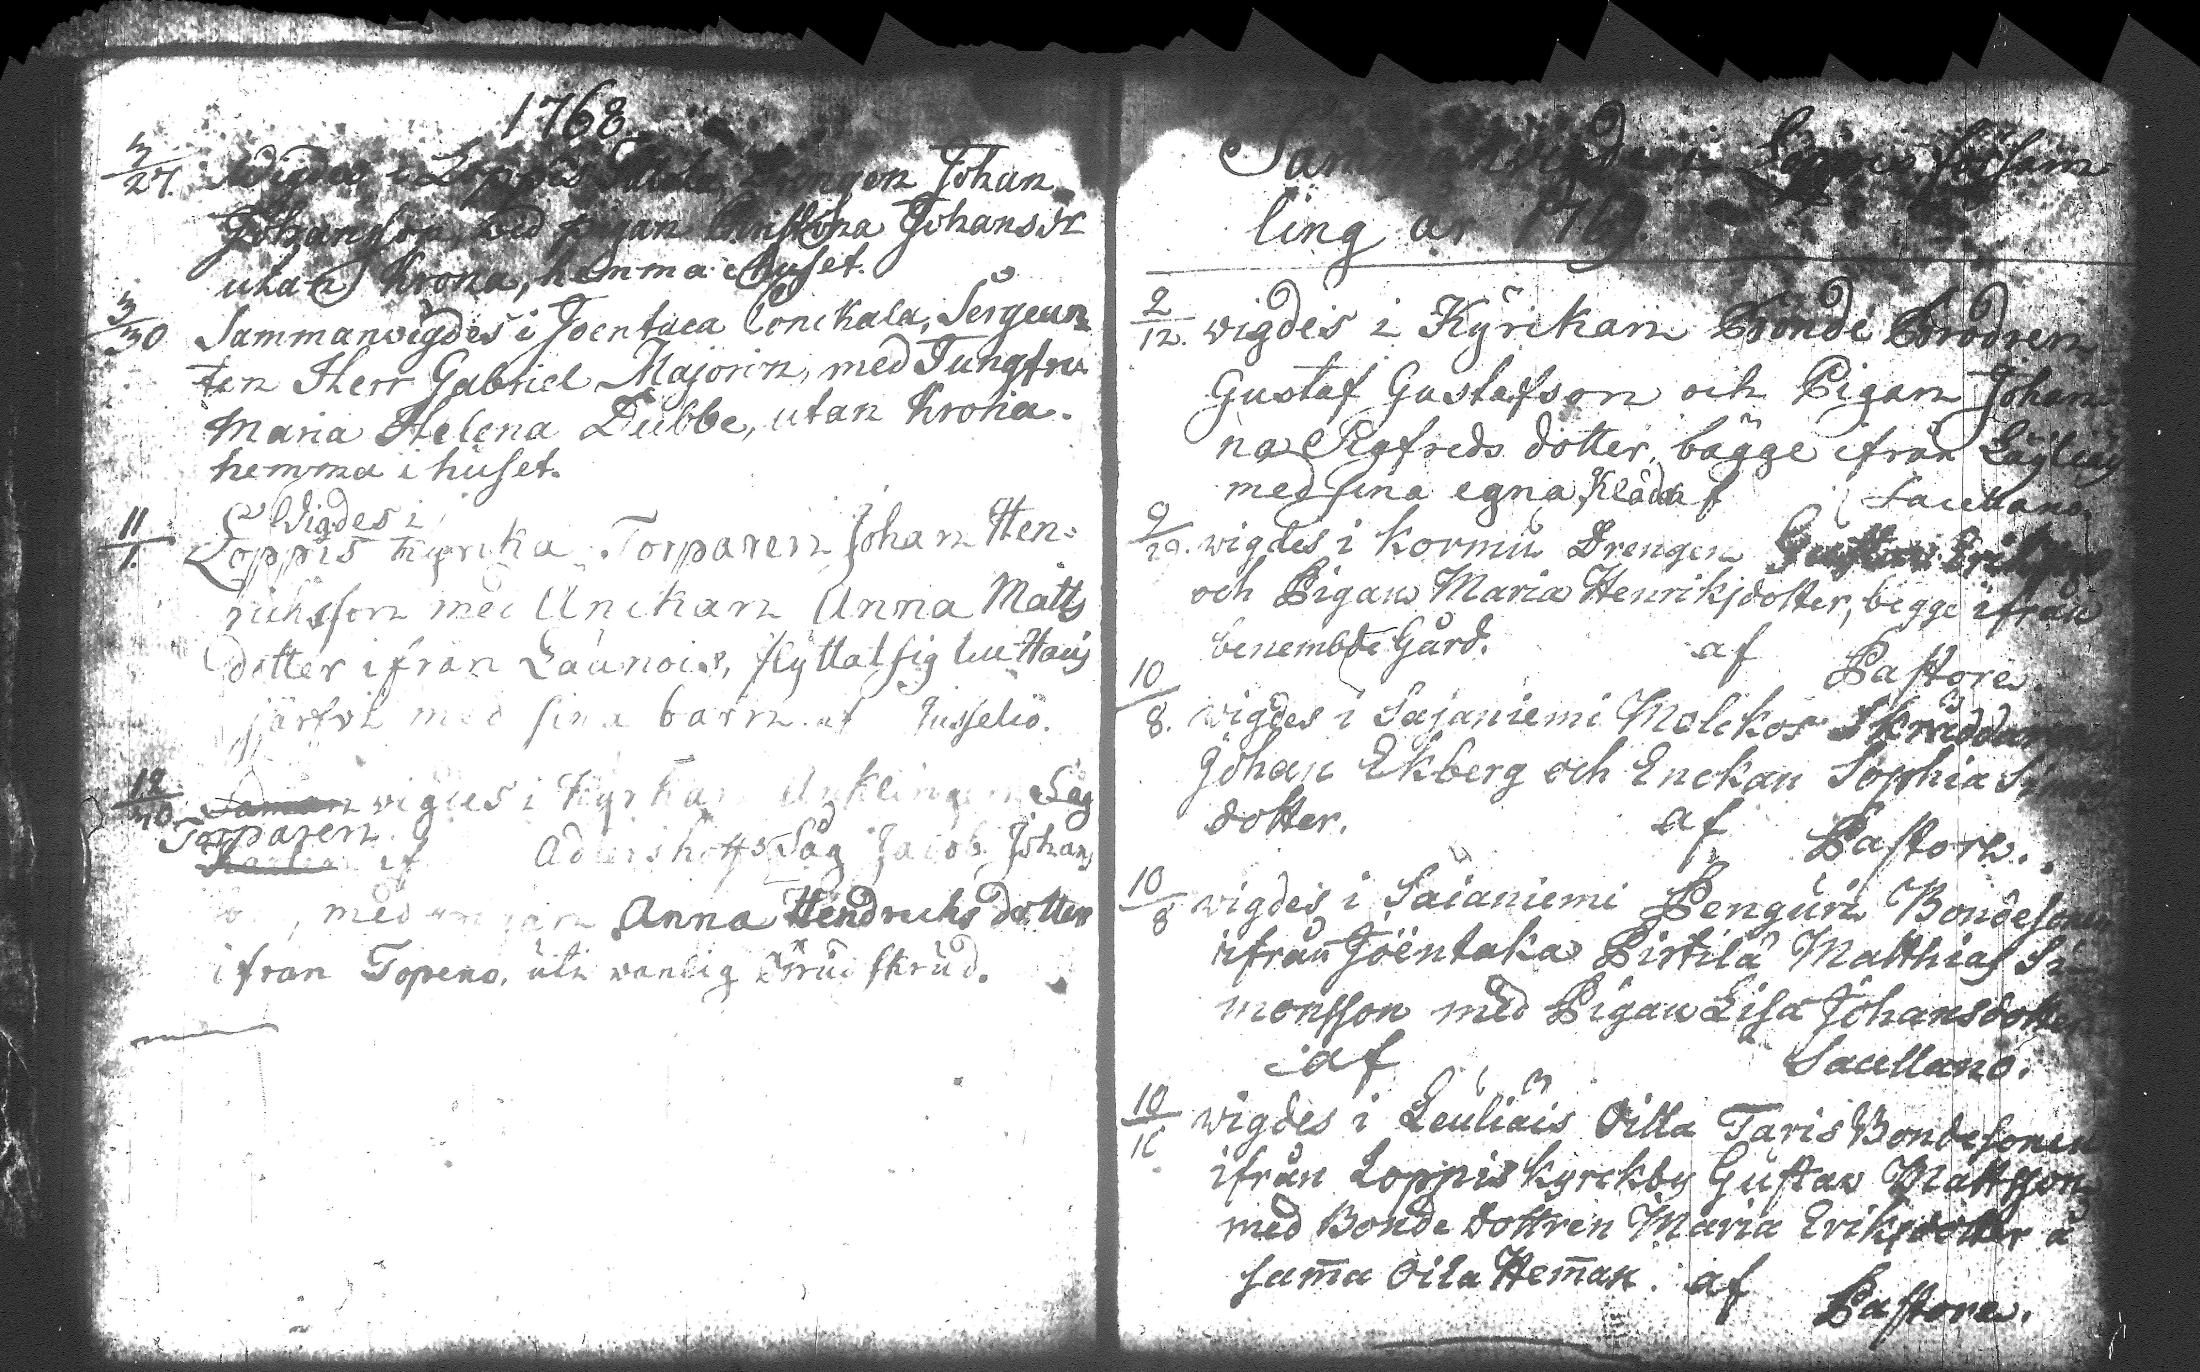 1768
3/27. Wigdes i Loppis Drengen Johan
Johansson, med pigan Christina Johansdr
utan Krona, hemma i huset.
3/30 Sammanwigdes i Joentaca Conikala, Sergean-
ten Herr Gabriel Majorin, med Jungfru
Maria Helena Dubbe, utan Krona.
hemma i huset.
11/1. Wigdes i
Loppis Kyrcka Torparen Johan Hen-
richsson med Änckan Anna Matts
dotter ifrån Launois, flyttat sig till Haus
järfvi med sina barn. af
12/10 Samman wigdes i Kyrkan Såg
Torparen
af Adlershoffs Såg Jacob Johans
son, med Anna Hendrichs dotter
ifrån Topeno, uti vanlig Brud skrud.
Sammanwigde i Loppis försam-
ling år 1769.
2/12. wigdes i Kyrckan Bonde Brodren
Gustaf Gustafson och Pigan Johan-
na Sigfreds dotter, bägge ifrån
med sina egna Kläder af Sacellano.
9/29. wigdes i Kormu Drengen
och Pigan Maria Henriksdotter, begge ifrån
benembde Gård. af Pastore.
10/8. wigdes i Sajaniemi Molckos Skräddaren
Johan Ekberg och Enckan Sophia Simons
dotter. af Pastore.
10/8 wigdes i Saianiemi Penguri Bondesonen
ifrån Joentaka Pirtilä Matthias Si-
monsson med Pigan Lisa Johansdotter
af Sacellano.
10/16 wigdes i Leuliäis Oilla Taris Bondesonen
ifrån Loppis Kyrckby Gustav Mattsson
med Bonde dottren Maria Eriksdotter å
sam̄a Oila Hem̄an. af Pastore.